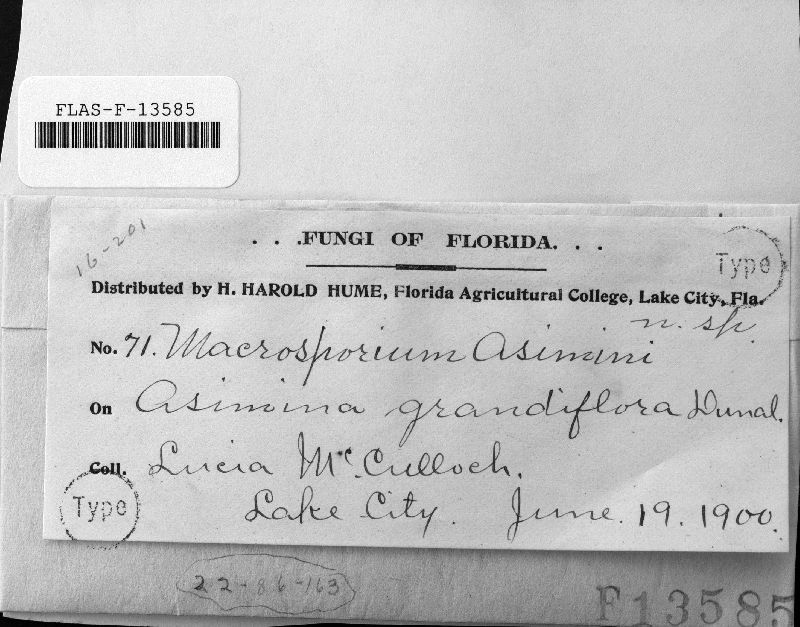 FLAS-F-13585
16-201
. . .FUNGI OF FLORIDA. . .
Type
Distributed by H. HAROLD HUME, Florida Agricultural College, Lake City, Fla.
n. sp.
No. 71. Macrosporium Asimini
On Asimina grandiflora Dunal.
Coll. Lucia Mc.Culloch.
Type
Lake City. June. 19. 1900.
22-86-163
F13585